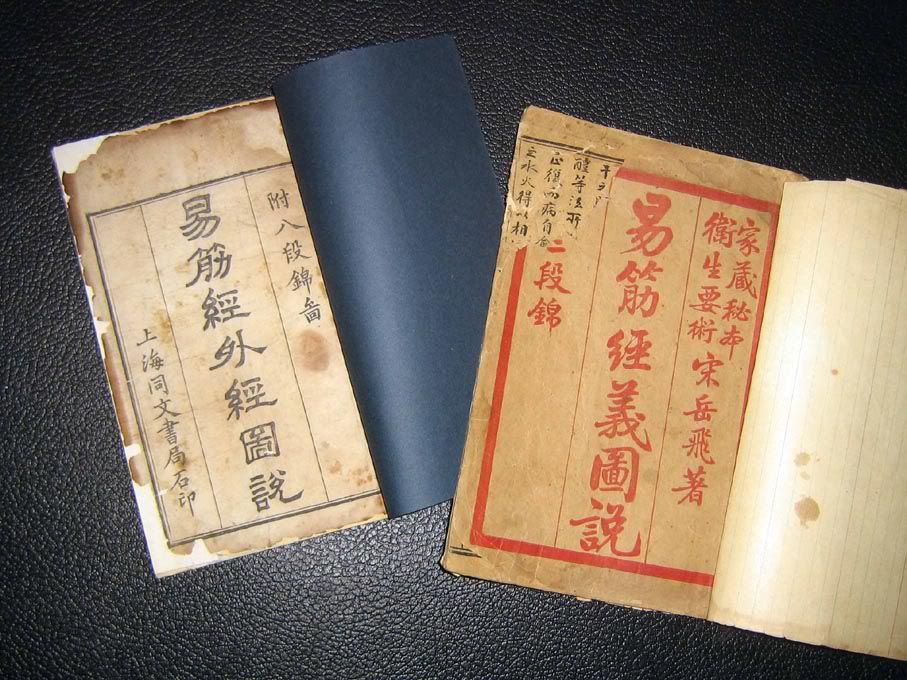 附八段錦啚
易筋經外經圖說
上海同文書局石印
家藏秘本
衛生要術
宋岳飛著
易筋經義圖說
二段錦
醒等法
症復四病自
水火得以相